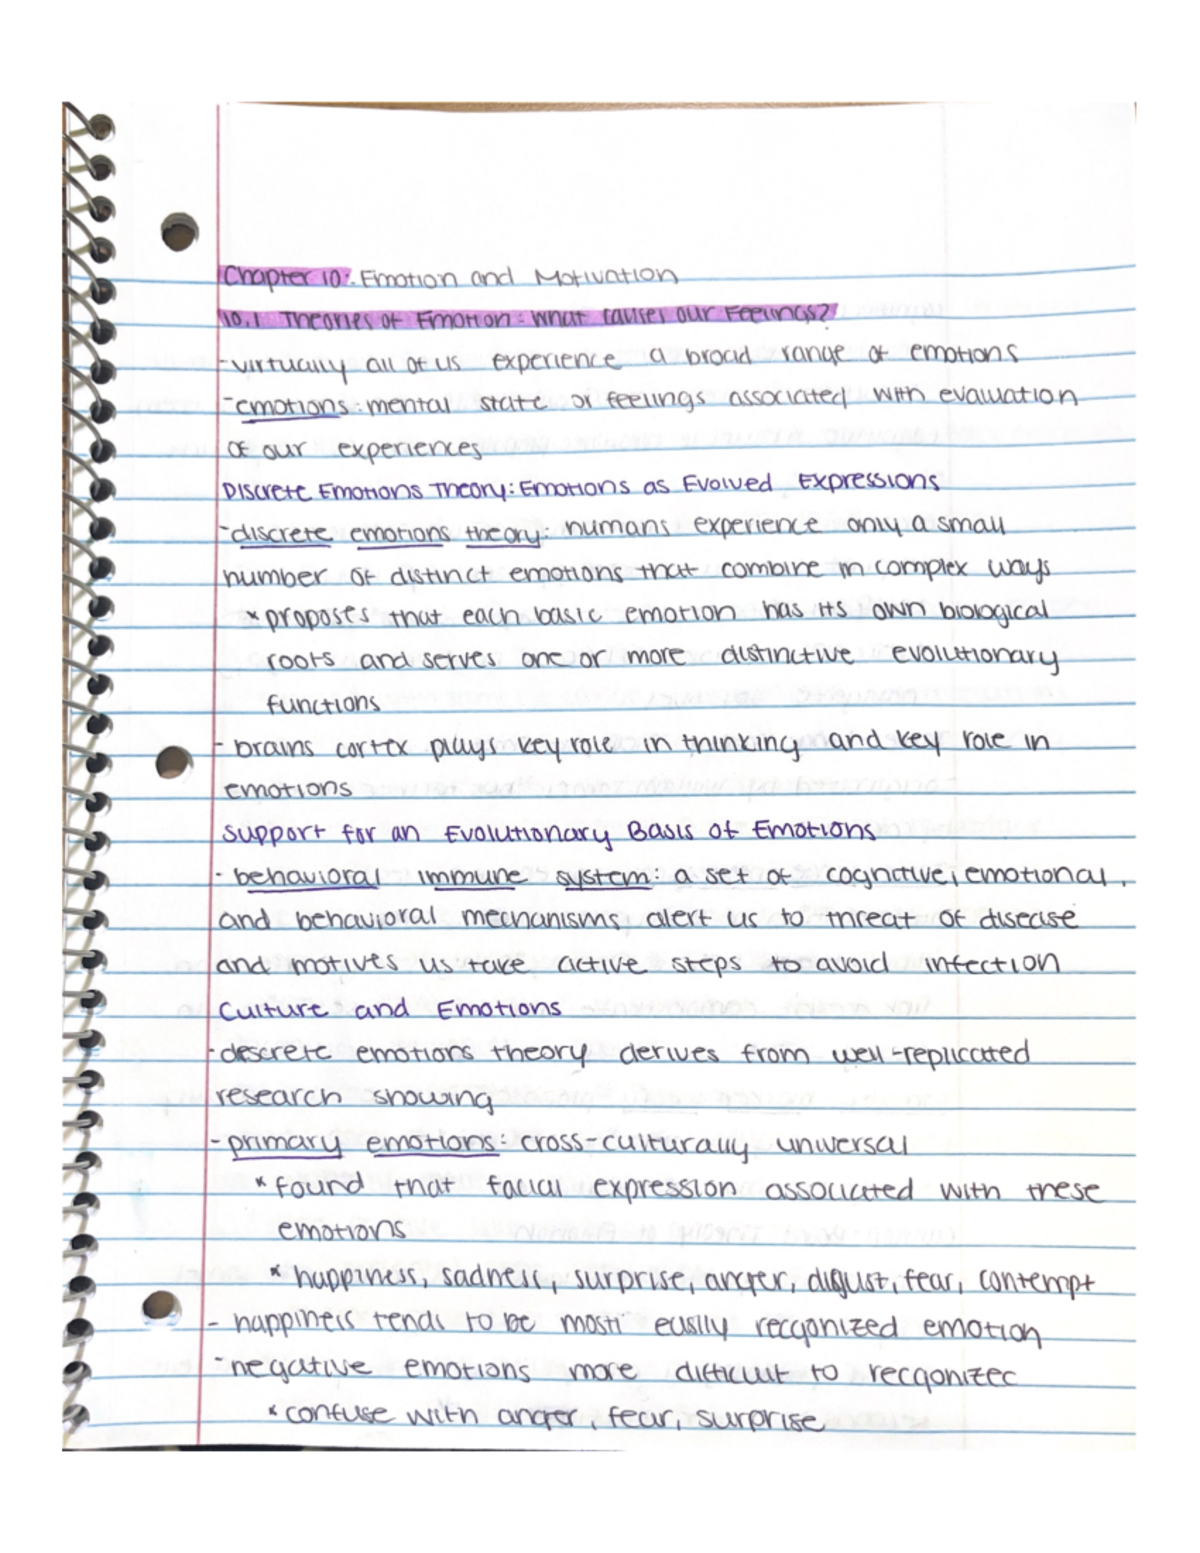 Chapter 10: Emotion and Motivation
10.1 Theories of Emotion: What causes our Feelings?
-virtually all of us experience a broad range of emotions
-emotions: mental state or feelings associated with evaluation
of our experiences
Discrete Emotions Theory: Emotions as Evolved Expressions
-discrete emotions theory: humans experience only a small
number of distinct emotions that combine in complex ways
*proposes that each basic emotion has its own biological
roots and serves one or more distinctive evolutionary
functions
- brains cortex plays key role in thinking and key role in
emotions
Support for an Evolutionary Basis of Emotions
- behavioral immune system: a set of cognitive, emotional,
and behavioral mechanisms alert us to threat of disease
and motives us take active steps to avoid infection
Culture and Emotions
-descrete emotions theory derives from well-replicated
research showing
- primary emotions: cross-culturally universal
* found that facial expression associated with these
emotions
* happiness, sadness, surprise, anger, digust, fear, contempt
- happiness tends to be most easily recgonized emotion
-negative emotions more difficult to recgonizec
* confuse with anger, fear, surprise